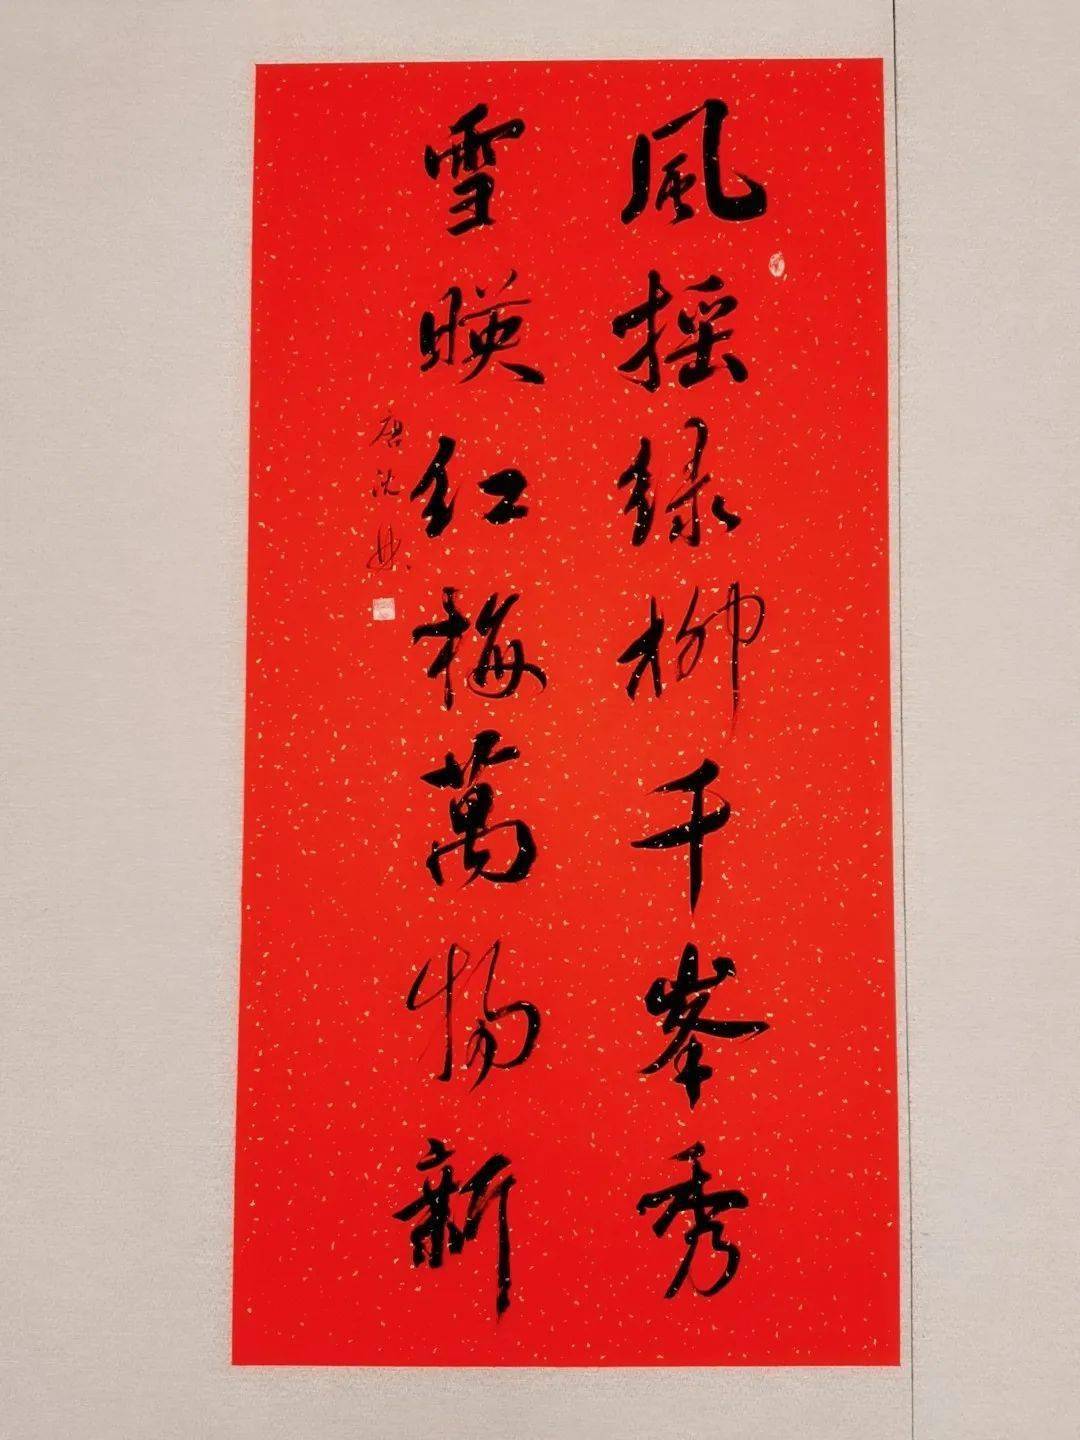 風摇绿柳千峯秀
雪暎红梅萬物新